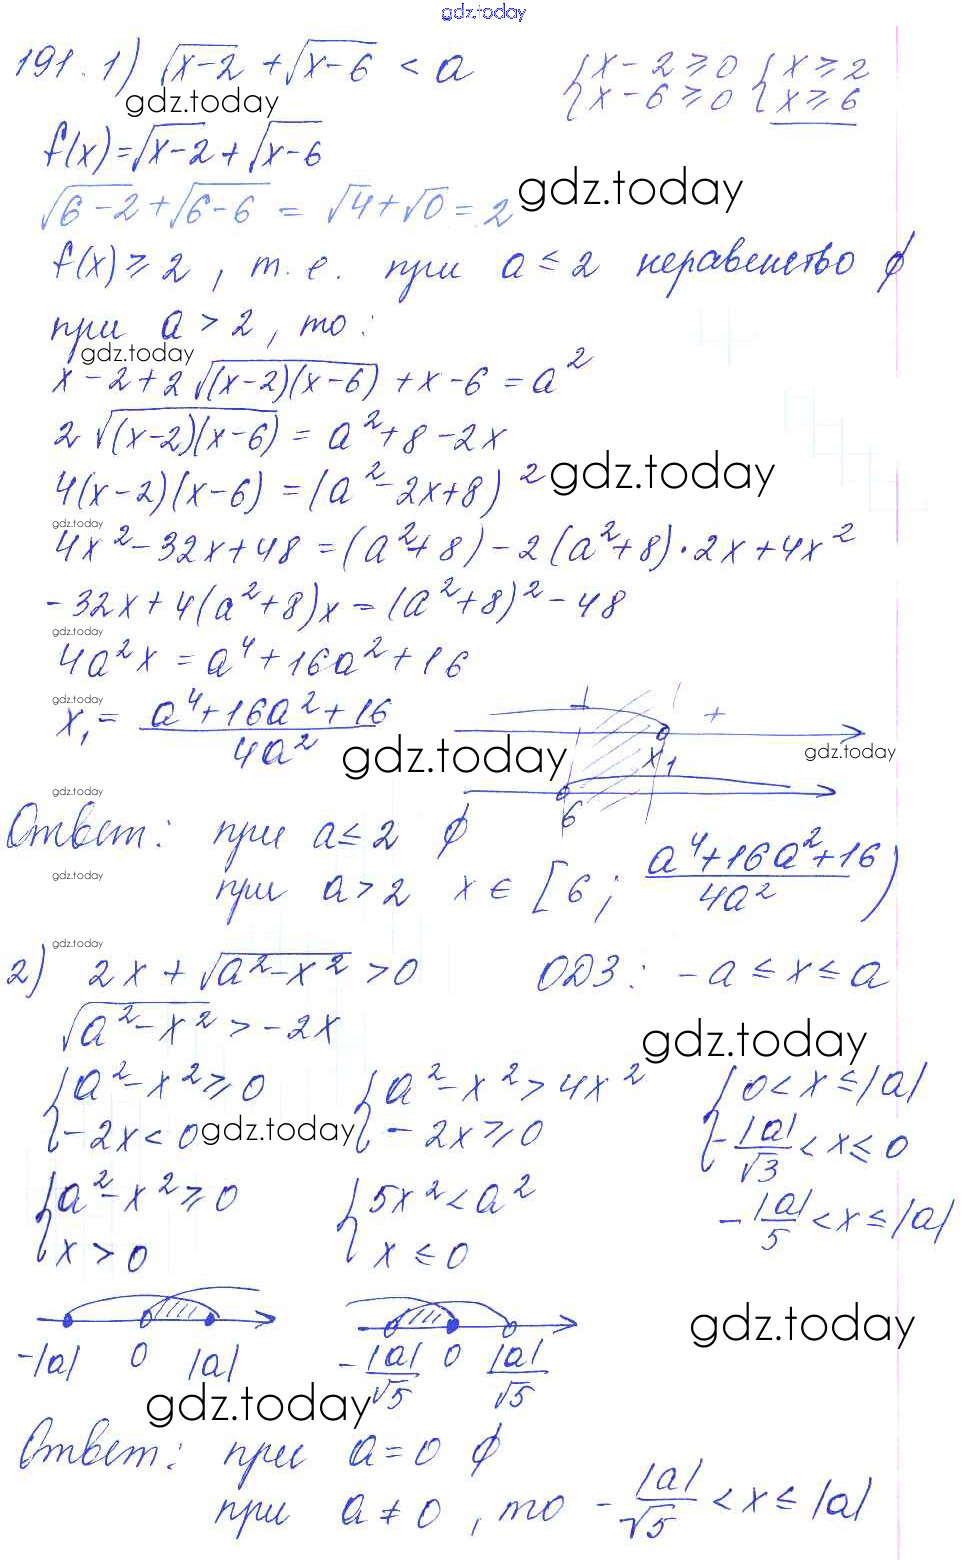 gdz.today
191. 1) √(x-2) + √(x-6) < a   {x-2 ≥ 0 {x ≥ 2
gdz.today   {x-6 ≥ 0 {x ≥ 6
f(x) = √(x-2) + √(x-6)
gdz.today
√(6-2) + √(6-6) = √4 + √0 = 2
f(x) ≥ 2, т.е. при a ≤ 2 неравенство ∅
при a > 2, то:
gdz.today
x-2+2√((x-2)(x-6)) + x-6 = a²
2√((x-2)(x-6)) = a²+8-2x
4(x-2)(x-6) = (a²-2x+8)² gdz.today
gdz.today
4x²-32x+48 = (a²+8)-2(a²+8)·2x+4x²
-32x+4(a²+8)x = (a²+8)²-48
gdz.today
4a²x = a⁴+16a²+16
gdz.today
x₁ = (a⁴+16a²+16)/(4a²)   +
gdz.today   x₁   gdz.today
gdz.today   6
Ответ: при a ≤ 2 ∅
gdz.today
при a > 2 x ∈ [6; (a⁴+16a²+16)/(4a²))
gdz.today
2) 2x + √(a²-x²) > 0   ОДЗ: -a ≤ x ≤ a
√(a²-x²) > -2x
gdz.today
{a²-x² ≥ 0   {a²-x² > 4x²   {0 < x ≤ |a|
{-2x < 0 gdz.today {-2x ≥ 0   {-|a|/√3 < x ≤ 0
{a²-x² ≥ 0   {5x² < a²   -|a|/5 < x ≤ |a|
{x > 0   {x ≤ 0
gdz.today
-|a| 0 |a|   -|a|/√5 0 |a|/√5
gdz.today
Ответ: при a = 0 ∅
при a ≠ 0, то -|a|/√5 < x ≤ |a|